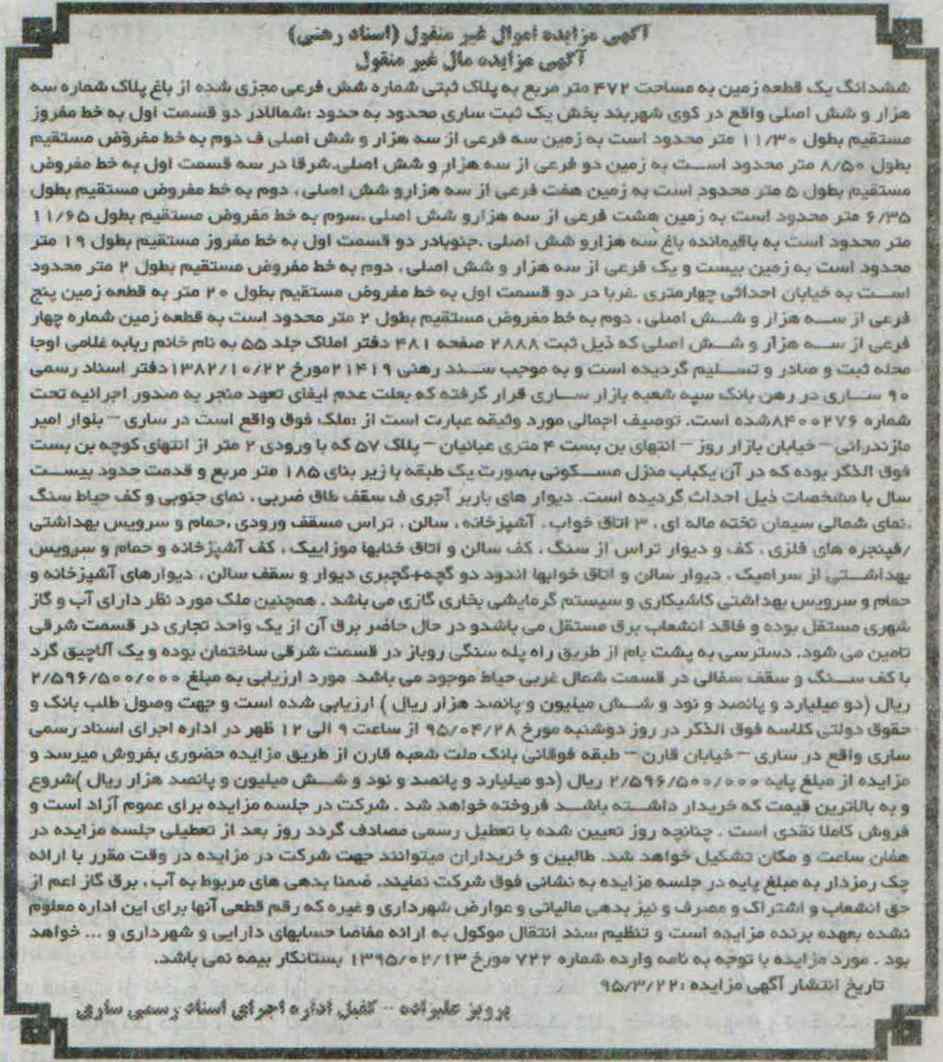 آگهی مزایده اموال غیر منقول (اسناد رهنی)
آگهی مزایده مال غیر منقول
ششدانگ یک قطعه زمین به مساحت ۴۷۲ متر مربع به پلاک ثبتی شماره شش فرعی مجزی شده از باغ پلاک شماره سه
هزار و شش اصلی واقع در کوی شهربند بخش یک ثبت ساری محدود به حدود :شمالادر دو قسمت اول به خط مفروز
مستقیم بطول ۱۱/۳۰ متر محدود است به زمین سه فرعی از سه هزار و شش اصلی ف دوم به خط مفروض مستقیم
بطول ۸/۵۰ متر محدود است به زمین دو فرعی از سه هزار و شش اصلی.شرقا در سه قسمت اول به خط مفروض
مستقیم بطول ۵ متر محدود است به زمین هفت فرعی از سه هزارو شش اصلی ، دوم به خط مفروض مستقیم بطول
۶/۳۵ متر محدود است به زمین هشت فرعی از سه هزارو شش اصلی .سوم به خط مفروض مستقیم بطول ۱۱/۶۵
متر محدود است به باقیمانده باغ سه هزارو شش اصلی .جنوبادر دو قسمت اول به خط مفروز مستقیم بطول ۱۹ متر
محدود است به زمین بیست و یک فرعی از سه هزار و شش اصلی ، دوم به خط مفروض مستقیم بطول ۲ متر محدود
است به خیابان احداثی چهارمتری .غربا در دو قسمت اول به خط مفروض مستقیم بطول ۲۰ متر به قطعه زمین پنج
فرعی از سه هزار و شش اصلی ، دوم به خط مفروض مستقیم بطول ۲ متر محدود است به قطعه زمین شماره چهار
فرعی از سه هزار و شش اصلی که ذیل ثبت ۲۸۸۸ صفحه ۴۸۱ دفتر املاک جلد ۵۵ به نام خانم ربابه غلامی اوجا
محله ثبت و صادر و تسلیم گردیده است و به موجب سند رهنی ۲۱۴۱۹مورخ ۱۳۸۲/۱۰/۲۲دفتر اسناد رسمی
۹۰ ساری در رهن بانک سپه شعبه بازار ساری قرار گرفته که بعلت عدم ایفای تعهد منجر به صدور اجرائیه تحت
شماره ۸۴۰۰۲۷۶شده است. توصیف اجمالی مورد وثیقه عبارت است از :ملک فوق واقع است در ساری – بلوار امیر
مازندرانی – خیابان بازار روز – انتهای بن بست ۴ متری عبائیان – پلاک ۵۷ که با ورودی ۲ متر از انتهای کوچه بن بست
فوق الذکر بوده که در آن یکباب منزل مسکونی بصورت یک طبقه با زیر بنای ۱۸۵ متر مربع و قدمت حدود بیست
سال با مشخصات ذیل احداث گردیده است. دیوار های باربر آجری ف سقف طاق ضربی ، نمای جنوبی و کف حیاط سنگ
،نمای شمالی سیمان تخته ماله ای ، ۳ اتاق خواب ، آشپزخانه ، سالن ، تراس مسقف ورودی ،حمام و سرویس بهداشتی
/فپنجره های فلزی ، کف و دیوار تراس از سنگ ، کف سالن و اتاق خنابها موزاییک ، کف آشپزخانه و حمام و سرویس
بهداشتی از سرامیک ، دیوار سالن و اتاق خوابها اندود دو گچه+گچبری دیوار و سقف سالن ، دیوارهای آشپزخانه و
حمام و سرویس بهداشتی کاشیکاری و سیستم گرمایشی بخاری گازی می باشد . همچنین ملک مورد نظر دارای آب و گاز
شهری مستقل بوده و فاقد انشعاب برق مستقل می باشدو در حال حاضر برق آن از یک واحد تجاری در قسمت شرقی
تامین می شود. دسترسی به پشت بام از طریق راه پله سنگی روباز در قسمت شرقی ساختمان بوده و یک آلاچیق گرد
با کف سنگ و سقف سفالی در قسمت شمال غربی حیاط موجود می باشد. مورد ارزیابی به مبلغ ۲/۵۹۶/۵۰۰/۰۰۰
ریال (دو میلیارد و پانصد و نود و شش میلیون و پانصد هزار ریال ) ارزیابی شده است و جهت وصول طلب بانک و
حقوق دولتی کلاسه فوق الذکر در روز دوشنبه مورخ ۹۵/۰۴/۲۸ از ساعت ۹ الی ۱۲ ظهر در اداره اجرای اسناد رسمی
ساری واقع در ساری – خیابان قارن – طبقه فوقانی بانک ملت شعبه قارن از طریق مزایده حضوری بفروش میرسد و
مزایده از مبلغ پایه ۲/۵۹۶/۵۰۰/۰۰۰ ریال (دو میلیارد و پانصد و نود و شش میلیون و پانصد هزار ریال )شروع
و به بالاترین قیمت که خریدار داشته باشد فروخته خواهد شد . شرکت در جلسه مزایده برای عموم آزاد است و
فروش کاملا نقدی است . چنانچه روز تعیین شده با تعطیل رسمی مصادف گردد روز بعد از تعطیلی جلسه مزایده در
همان ساعت و مکان تشکیل خواهد شد. طالبین و خریداران میتوانند جهت شرکت در مزایده در وقت مقرر با ارائه
چک رمزدار به مبلغ پایه در جلسه مزایده به نشانی فوق شرکت نمایند. ضمنا بدهی های مربوط به آب ، برق گاز اعم از
حق انشعاب و اشتراک و مصرف و نیز بدهی مالیاتی و عوارض شهرداری و غیره که رقم قطعی آنها برای این اداره معلوم
نشده بعهده برنده مزایده است و تنظیم سند انتقال موکول به ارائه مفاصا حسابهای دارایی و شهرداری و ... خواهد
بود . مورد مزایده با توجه به نامه وارده شماره ۷۲۲ مورخ ۱۳۹۵/۰۲/۱۳ بستانکار بیمه نمی باشد.
تاریخ انتشار آگهی مزایده :۹۵/۳/۲۲
پرویز علیزاده – کفیل اداره اجرای اسناد رسمی ساری